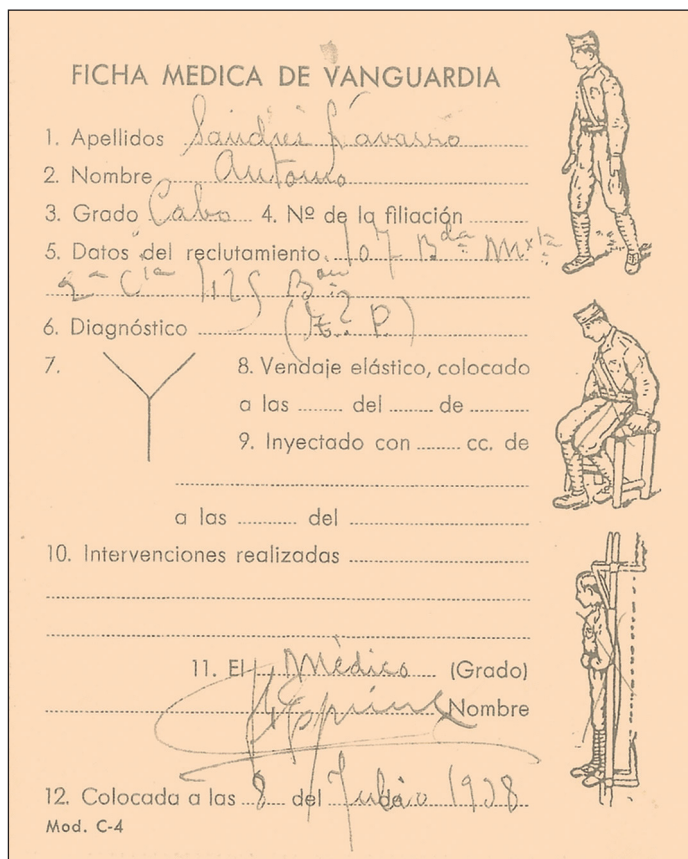 FICHA MEDICA DE VANGUARDIA
1. Apellidos Navarro
2. Nombre Antonio
3. Grado Cabo 4. Nº de la filiación
5. Datos del reclutamiento 107 Bda Mxta
2ª Cia 425 Bon
6. Diagnóstico
7. 8. Vendaje elástico, colocado
a las del de
9. Inyectado con cc. de
a las del
10. Intervenciones realizadas
11. El Médico (Grado)
Nombre
12. Colocada a las 8 del Julio de 1938
Mod. C-4